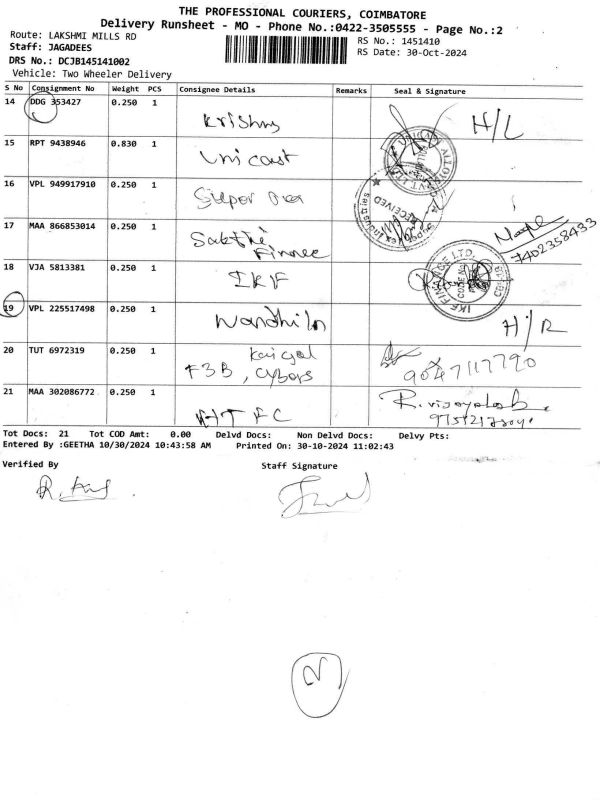 THE PROFESSIONAL COURIERS, COIMBATORE
Delivery Runsheet - MO - Phone No.:0422-3505555 - Page No.:2
Route: LAKSHMI MILLS RD
RS No.: 1451410
Staff: JAGADEES
RS Date: 30-Oct-2024
DRS No.: DCJB145141002
Vehicle: Two Wheeler Delivery
S No Consignment No Weight PCS Consignee Details Remarks Seal & Signature
14 DDG 353427 0.250 1 Krishns H/L
15 RPT 9438946 0.830 1 Unicast
16 VPL 949917910 0.250 1 Super
17 MAA 866853014 0.250 1 Sakthi Finnee
7402358433
18 VJA 5813381 0.250 1 IKF
19 VPL 225517498 0.250 1 H/R
20 TUT 6972319 0.250 1 F3B, Cybors 9047117790
21 MAA 302086772 0.250 1
Tot Docs: 21 Tot COD Amt: 0.00 Delvd Docs: Non Delvd Docs: Delvy Pts:
Entered By :GEETHA 10/30/2024 10:43:58 AM Printed On: 30-10-2024 11:02:43
Verified By
Staff Signature
2